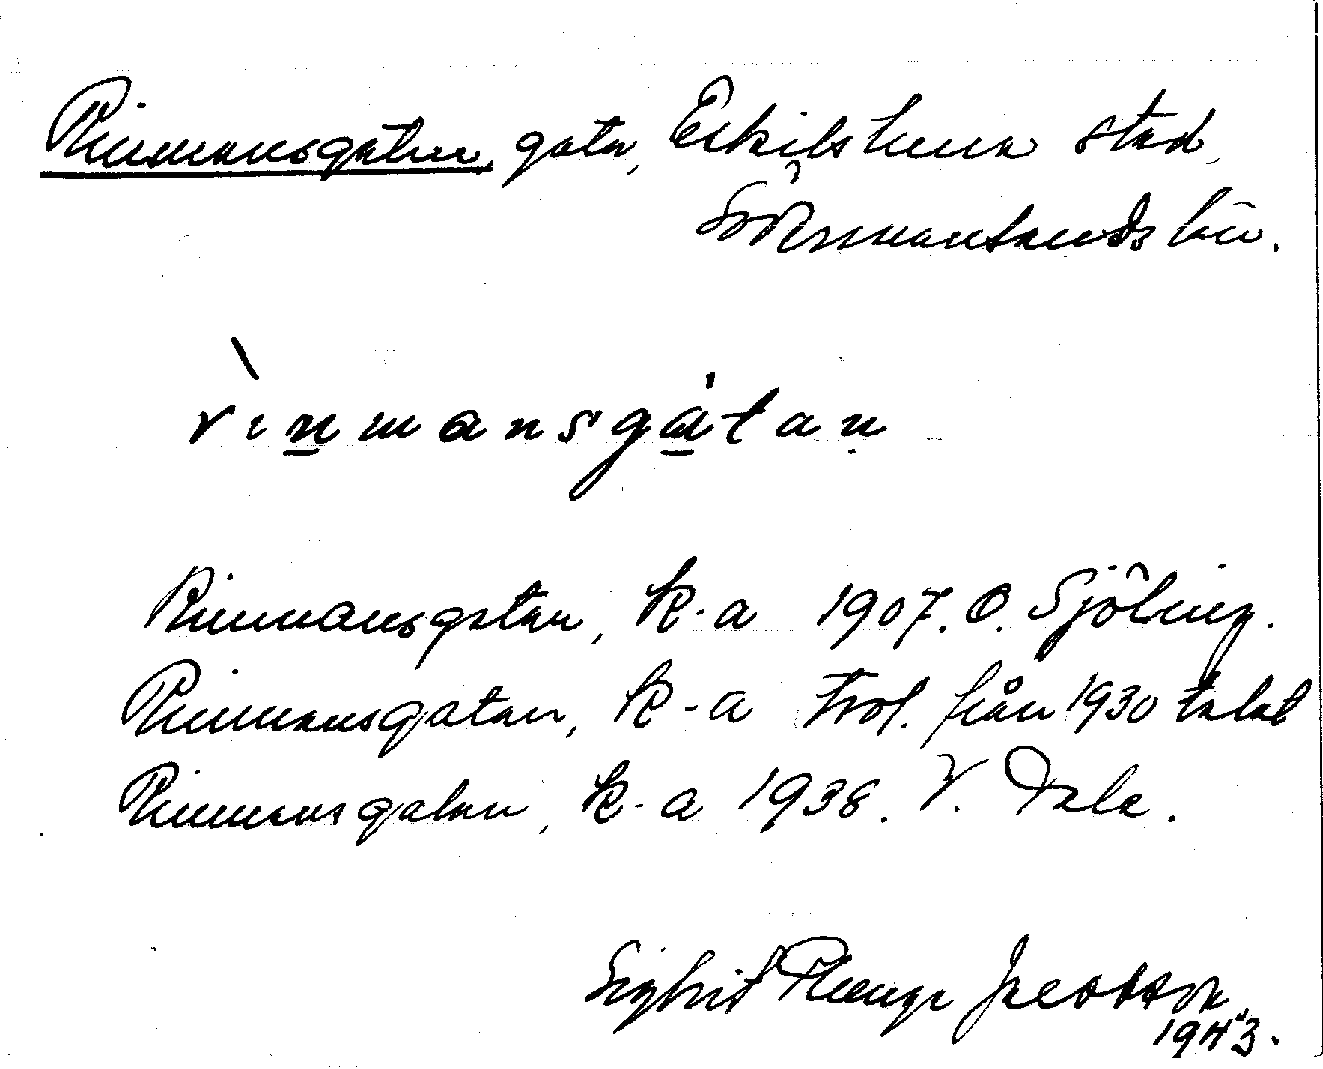 Rinmansgatan, gata, Eskilstuna stad,
Södermanlands län.
rinmansgatan
Rinmansgatan, k-a 1907. O. Sjöling.
Rinmansgatan, k-a Trol. från 1930 talet
Rinmansgatan, k-a 1938. V. Dala.
Sigbrit Plænge Jacobson
1943.